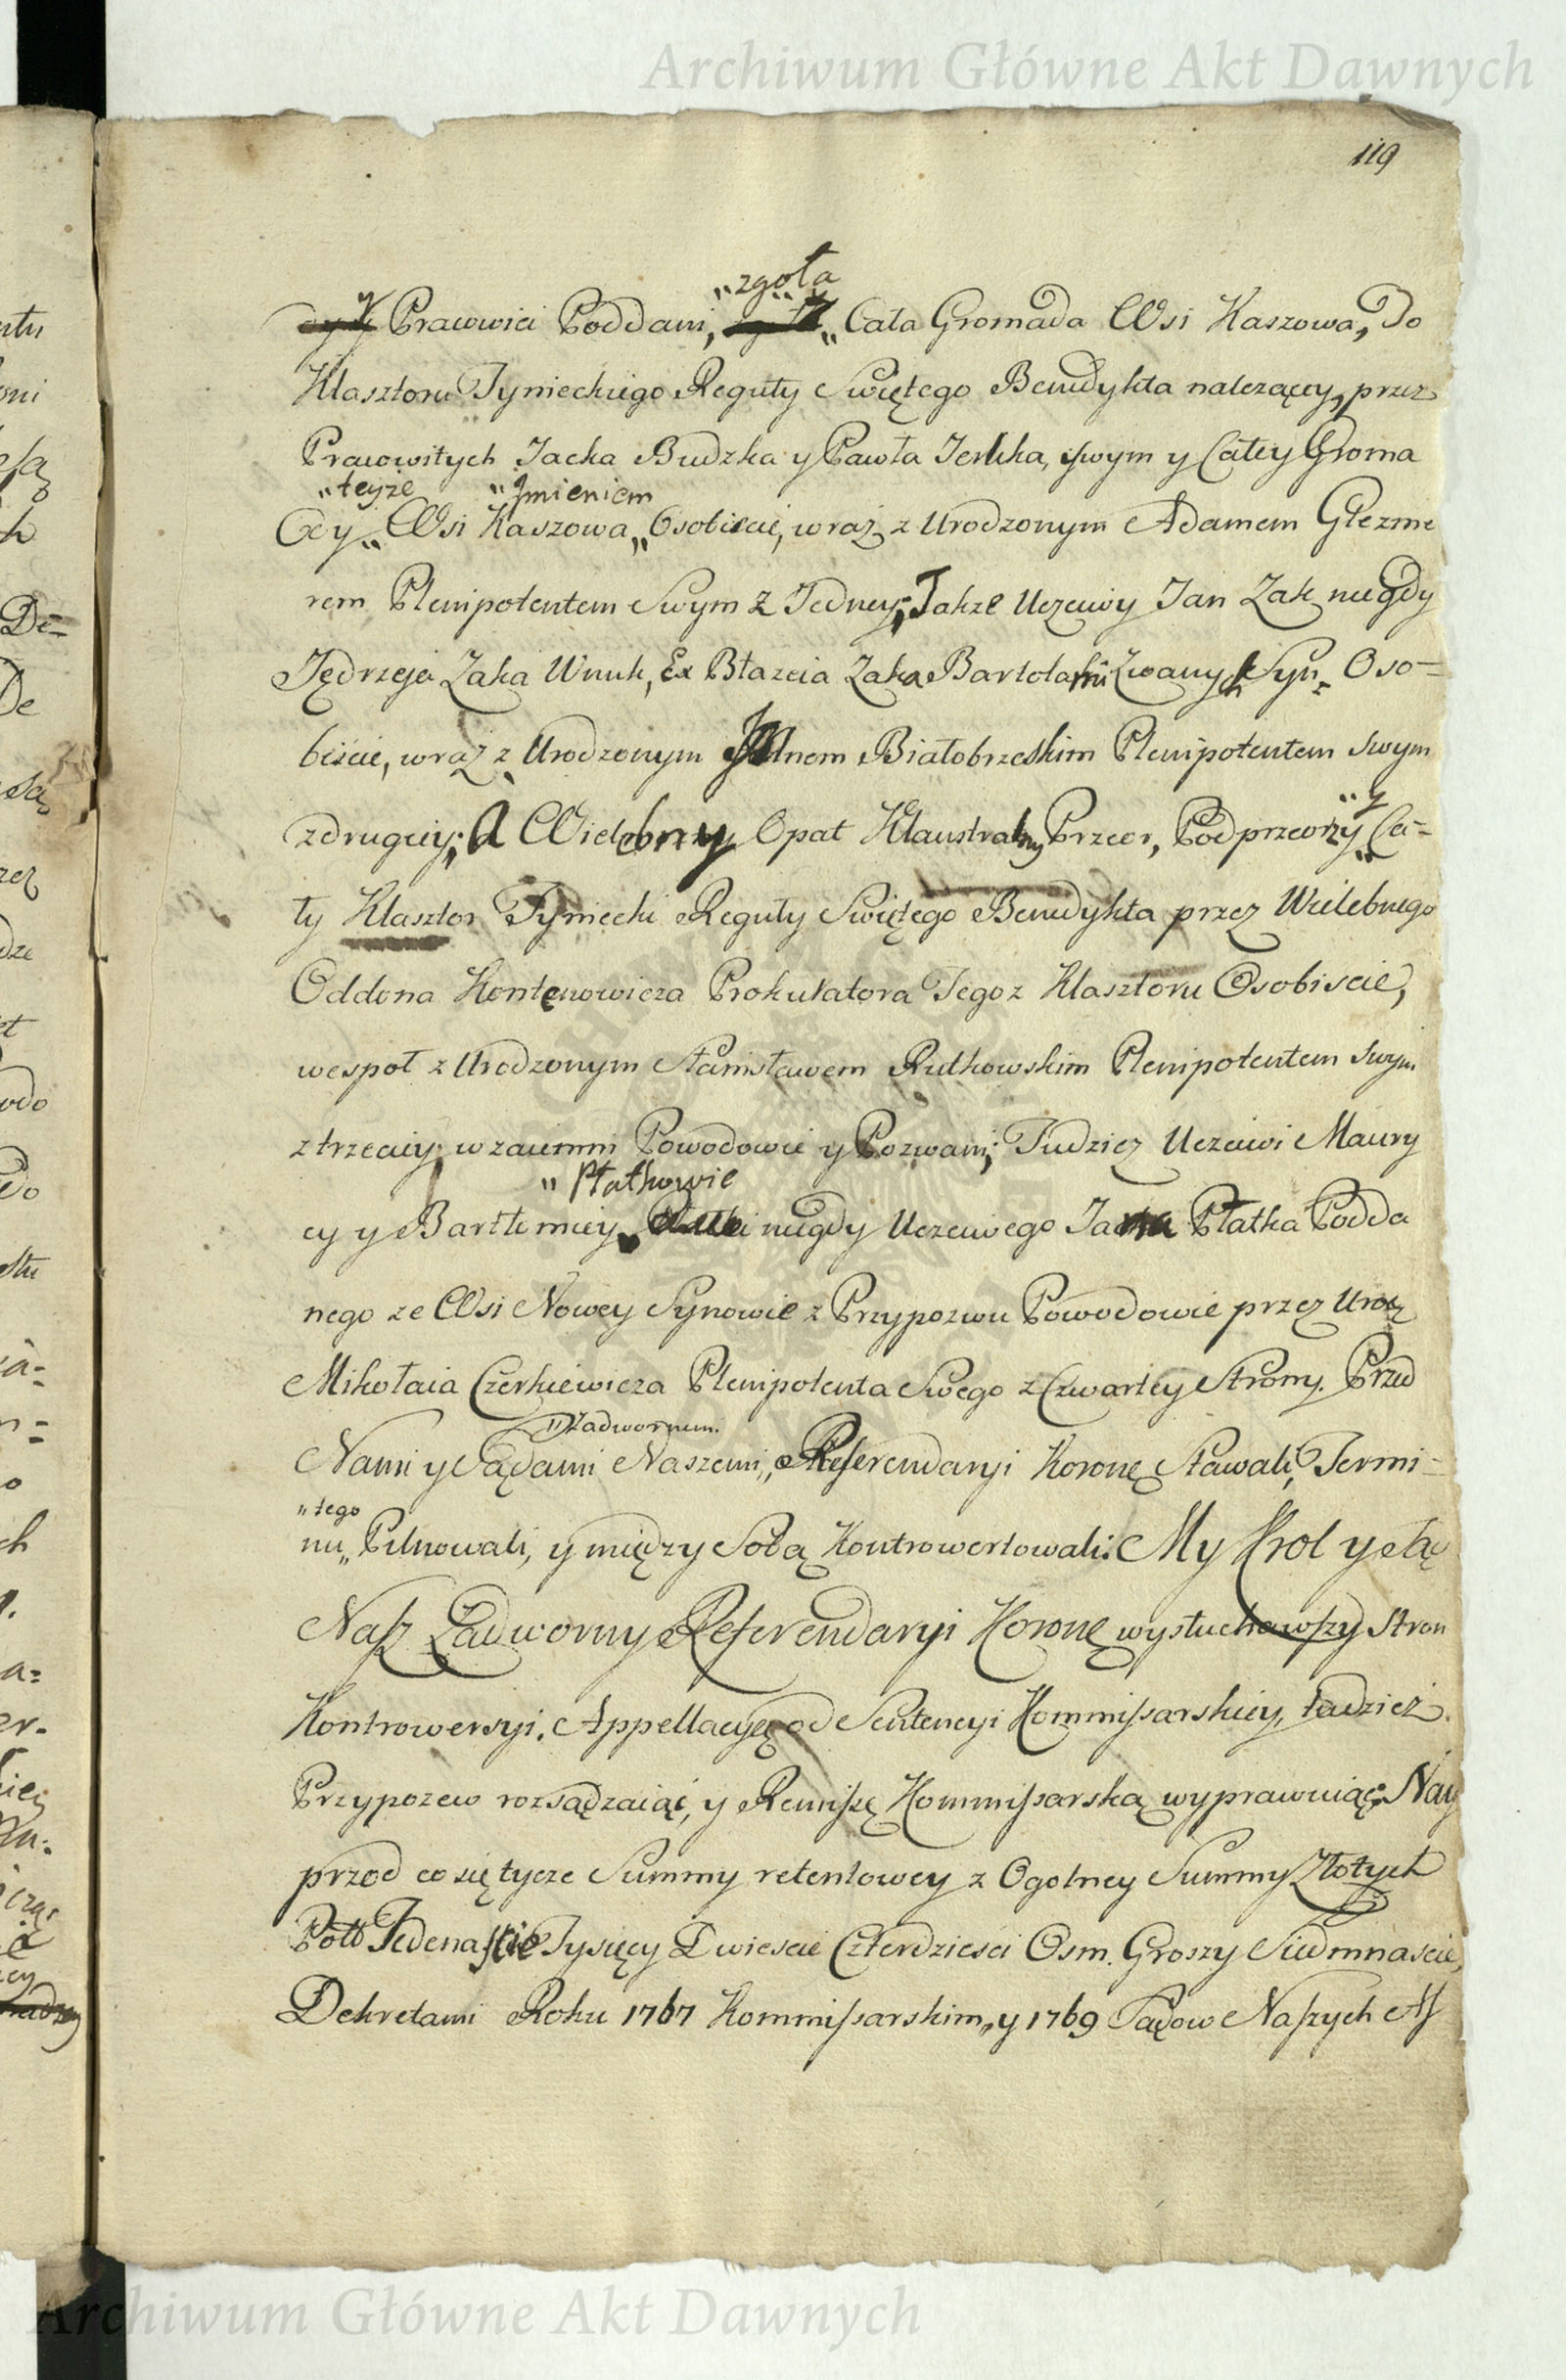 Archiwum Główne Akt Dawnych
119
„zgoła
y Pracowici Poddani, „ Cała Gromada Wsi Kaszowa, Do
Klasztoru Tynieckiego Reguły Swiętego Benedykta nalezący, przez
Pracowitych Jacka Budzka y Pawła Jerkka, swym y Całey Groma
„teyze „Jmieniem
dy„ Wsi Kaszowa„ Osobiscie, wraz z Urodzonym Adamem Glezme
rem Plenipotentem Swym z Jedney; Takze Uczciwy Jan Zak niegdy
Jędrzeja Zaka Wnuk, Ex Błazeia Zaka Bartolami Zwanych Syn, Oso=
biscie, wraz z Urodzonym Janem Białobrzeskim Plenipotentem swym
z drugiey; A Wielebny Opat Klaustralny Przeor, Podprzeorzy „y„ Ca=
ły Klasztor Tyniecki Reguły Swiętego Benedykta przez Wielebnego
Oddona Kontęnowicza Prokuratora Tegoz Klasztoru Osobiscie,
wespoł z Urodzonym Stanisławem Rutkowskim Plenipotentem swym
z trzeciey wzaiemni Powodowie y Pozwani; Tudziez Uczciwi Maury
„Płatkowie
cy y Bartłomiey niegdy Uczciwego Jacka Płatka Podda
nego ze Wsi Nowey Synowie z Przypozwu Powodowie przez Urodz
Mikołaia Czerkiewicza Plenipotenta Swego z Czwartey Strony. Przed
„Zadwornemi
Nami y Sądami Naszemi„ Referendaryi Koronę Stawali, Termi=
„tego
nu„ Pilnowali, y między Sobą Kontrowertowali: My Krol y Są
Nasz Zadworny Referendaryi Koronę wysłuchawszy Stron
Kontrowersyi, Appellacyą od Sentencyi Kommissarskiey, tudziez
Przypozew rozsądzaiąc, y Remissę Kommissarską wyprawuiąc: Nay
przod co się tycze Summy retentowey z Ogolney Summy Złotych
Poł Jedenascie Tysięcy Dwiescie Czterdziesci Osm. Groszy Siedmnascie,
Dekretami Roku 1767 Kommissarskim, y 1769 Sądow Naszych As
Archiwum Główne Akt Dawnych